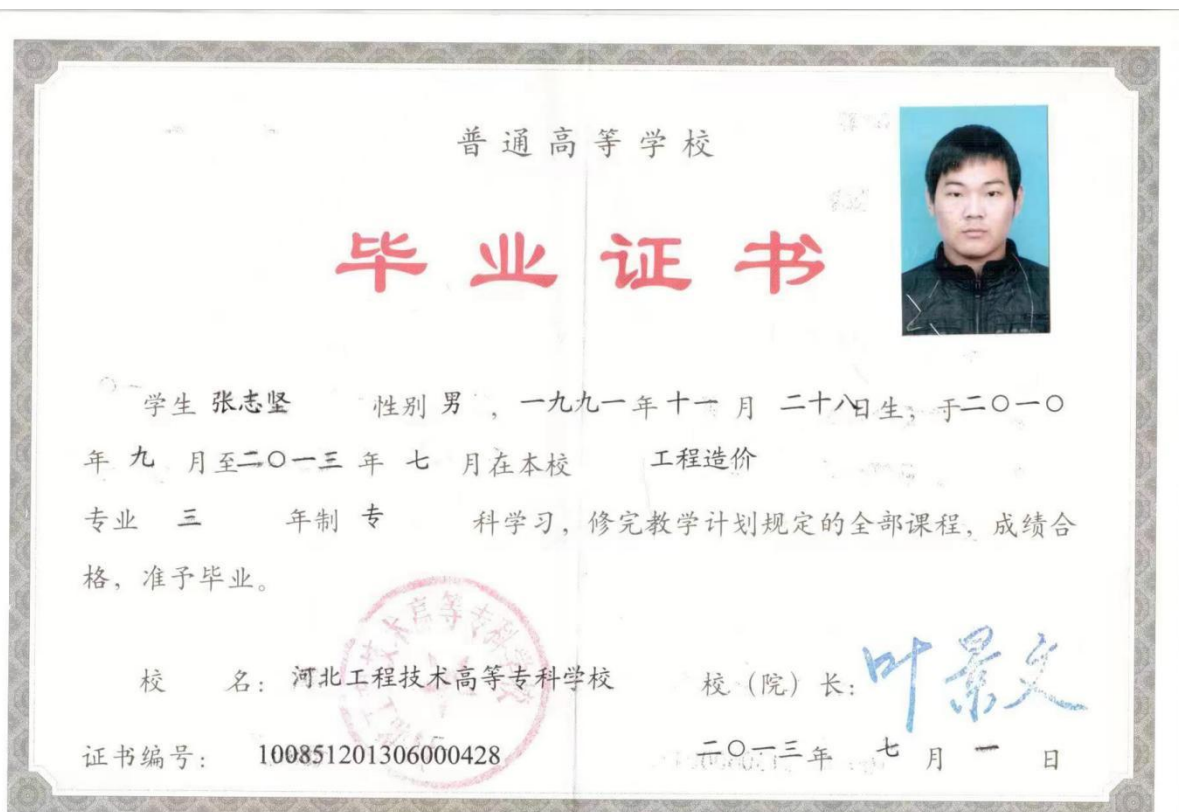 普通高等学校
毕业证书
学生 张志坚 性别 男 , 一九九一年十一月 二十八日生, 于二〇一〇
年 九 月至二〇一三 年 七 月在本校 工程造价
专业 三 年制 专 科学习, 修完教学计划规定的全部课程, 成绩合
格, 准予毕业。
校 名: 河北工程技术高等专科学校 校（院）长: 叶景文
证书编号: 100851201306000428 二〇一三年 七 月 一 日